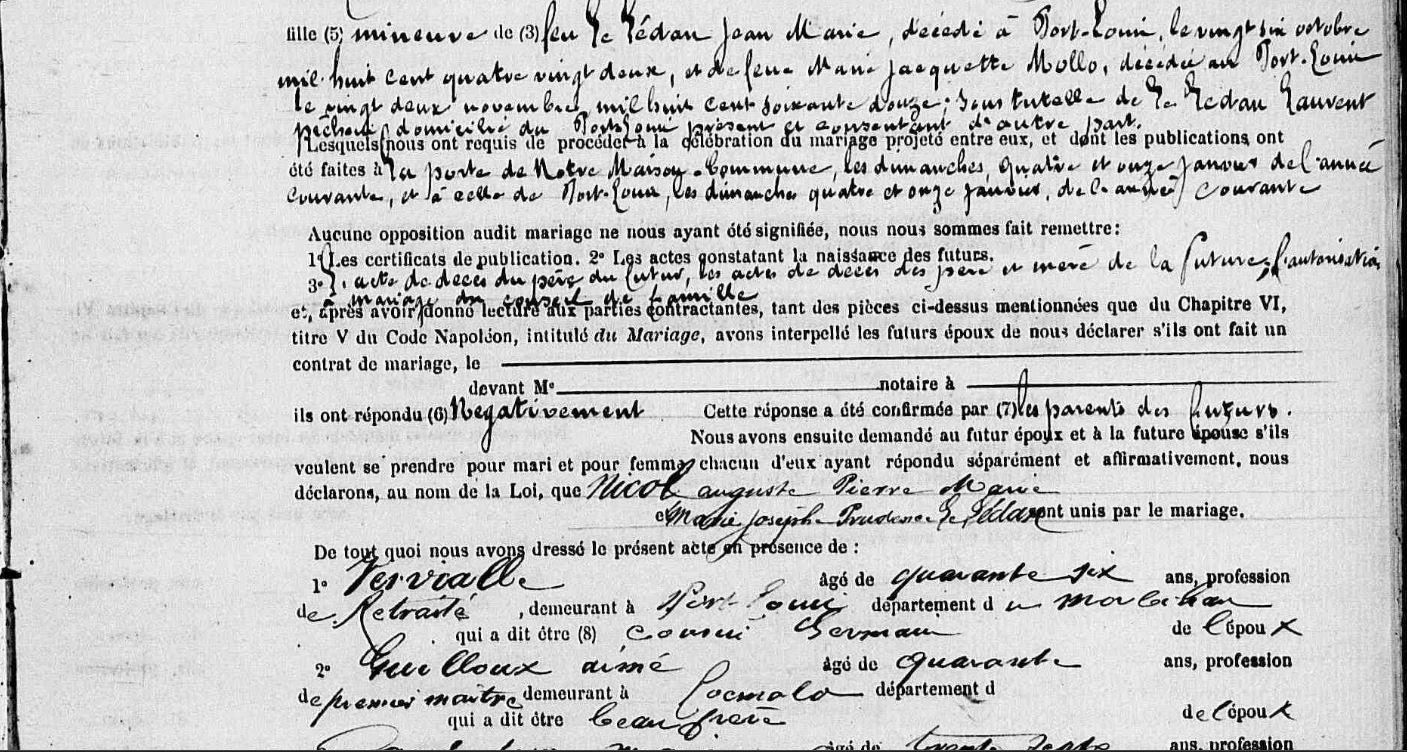 fille (5) mineure de (3) feu Le Lédan Jean Marie, décédé à Port-Louis, le vingt six octobre
mil huit cent quatre vingt deux, et de feue Marie Jacquette Mollo, décédée au Port-Louis
le vingt deux novembre, mil huit cent soixante douze; sous tutelle de Le Lédan Laurent
pêcheur domicilié du Port-Louis présent et consentant d'autre part.
Lesquels nous ont requis de procéder à la célébration du mariage projeté entre eux, et dont les publications ont
été faites à la porte de Notre Maison-Commune, les dimanches, quatre et onze Janvier de l'année
courante, et à celle de Port-Louis, les dimanches quatre et onze Janvier, de l'année courante
Aucune opposition audit mariage ne nous ayant été signifiée, nous nous sommes fait remettre:
1° Les certificats de publication. 2° Les actes constatant la naissance des futurs.
3° L'acte de décès du père du futur, les actes de décès des père et mère de la future, l'autorisation
à mariage du conseil de famille
et, après avoir donné lecture aux parties contractantes, tant des pièces ci-dessus mentionnées que du Chapitre VI,
titre V du Code Napoléon, intitulé du Mariage, avons interpellé les futurs époux de nous déclarer s'ils ont fait un
contrat de mariage, le
devant Me notaire à
ils ont répondu (6) Négativement Cette réponse a été confirmée par (7) les parents des futurs.
Nous avons ensuite demandé au futur époux et à la future épouse s'ils
veulent se prendre pour mari et pour femme, chacun d'eux ayant répondu séparément et affirmativement, nous
déclarons, au nom de la Loi, que Nicol auguste Pierre Marie
et Marie Joseph Prudence Le Lédan sont unis par le mariage.
De tout quoi nous avons dressé le présent acte en présence de :
1° âgé de quarante six ans, profession
de Retraité, demeurant à Port Louis département du Morbihan
qui a dit être (8) cousin Germain de l'époux
2° Guilloux aimé âgé de quarante ans, profession
de premier maître demeurant à Locmalo département d
qui a dit être beau frère de l'époux
âgé de trente sept ans, profession